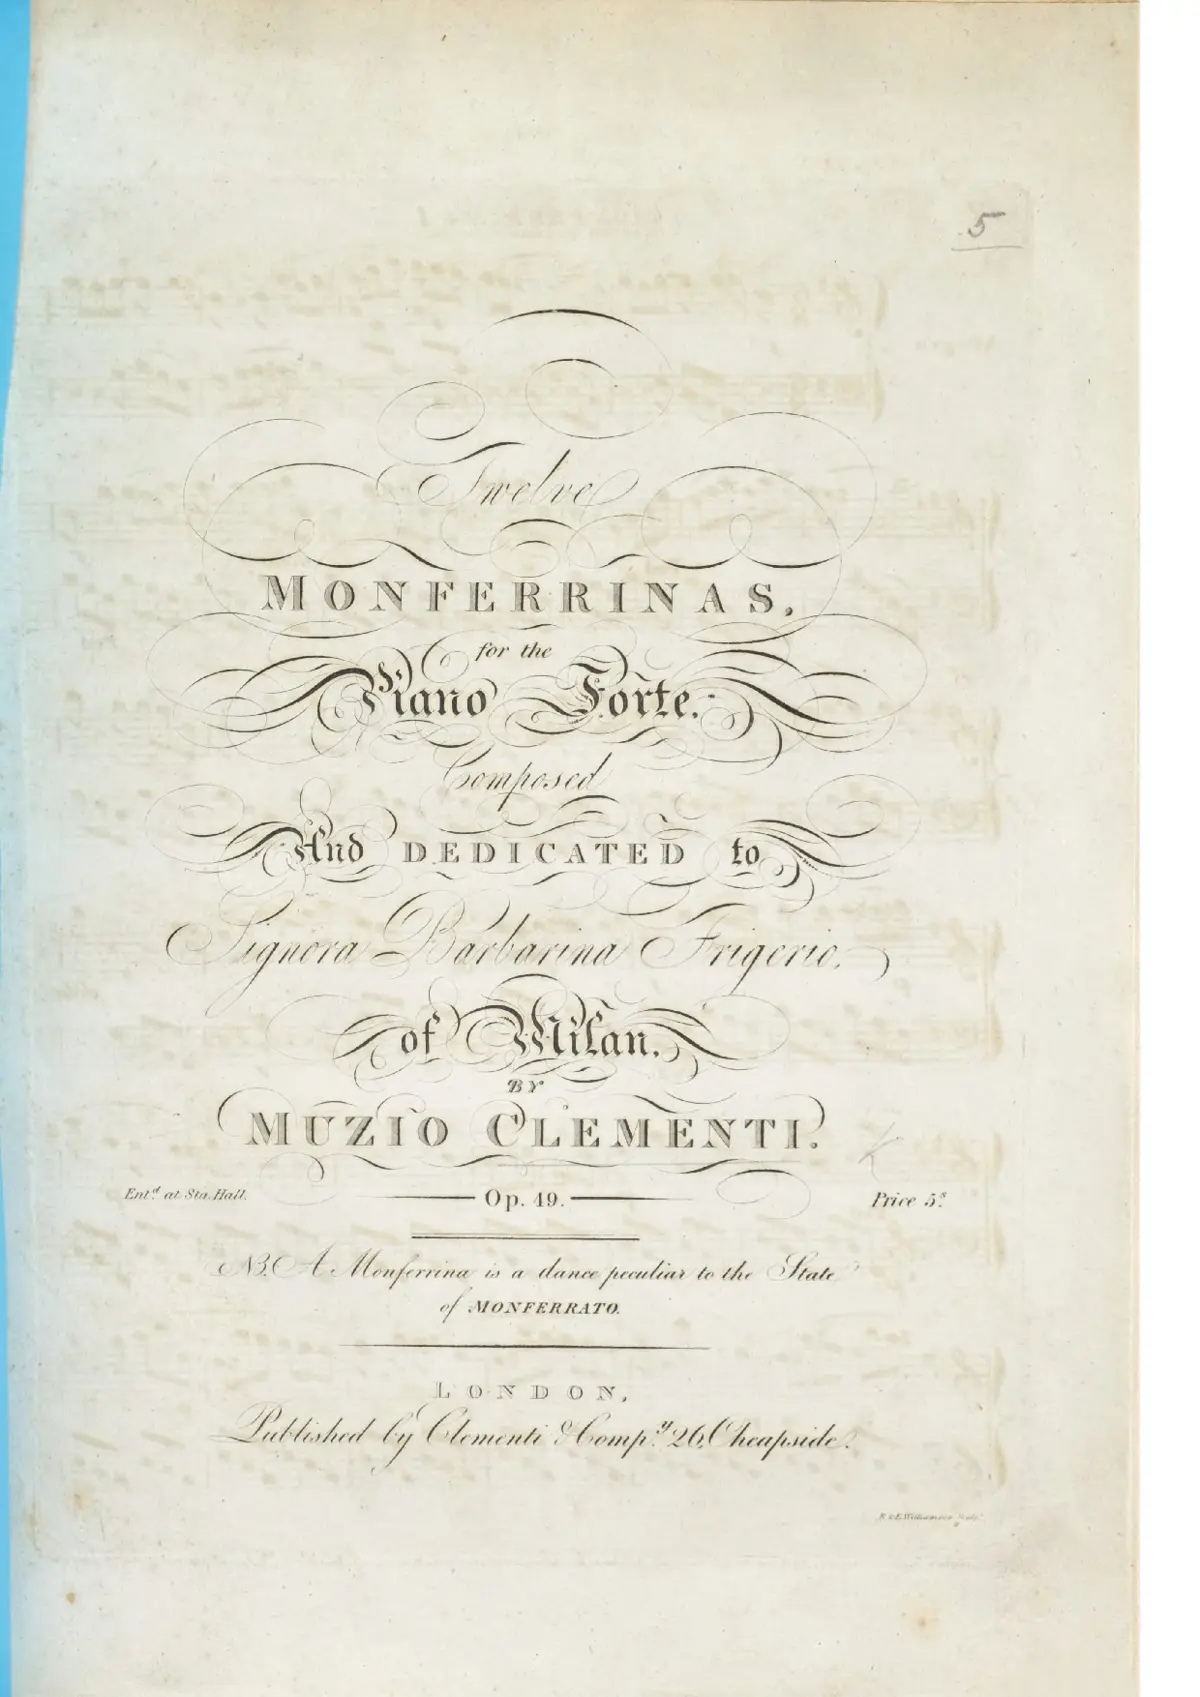 5
Twelve
MONFERRINAS,
for the
Piano Forte.
Composed
And DEDICATED to
Signora Barbarina Frigerio,
of Milan.
BY
MUZIO CLEMENTI.
Ent.d at Sta. Hall. Op. 49. Price 5s.
NB. A Monferrina is a dance peculiar to the State
of MONFERRATO.
LONDON,
Published by Clementi & Comp.y 26, Cheapside.